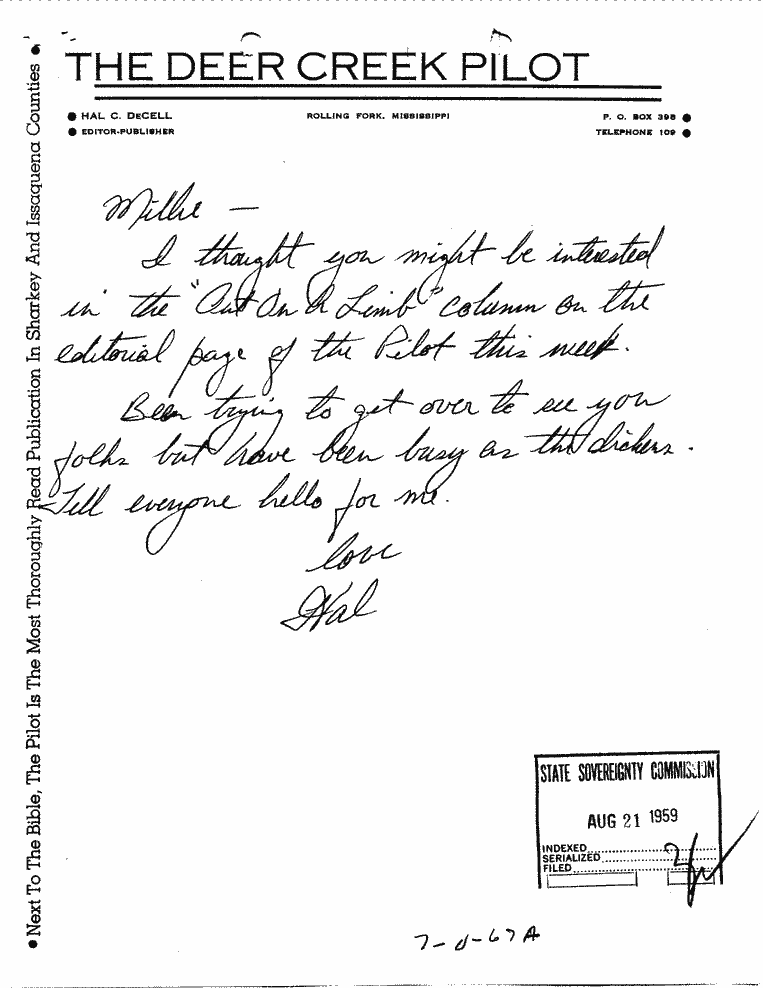 THE DEER CREEK PILOT
● HAL C. DECELL
● EDITOR-PUBLISHER
ROLLING FORK, MISSISSIPPI
P. O. BOX 398 ●
TELEPHONE 109 ●
● Next To The Bible, The Pilot Is The Most Thoroughly Read Publication In Sharkey And Issaquena Counties ●
Millie —
I thought you might be interested
in the "Out On A Limb" column on the
editorial page of the Pilot this week.
Been trying to get over to see you
folks but have been busy as the dickens.
Tell everyone hello for me.
love
Hal
STATE SOVEREIGNTY COMMISSION
AUG 21 1959
INDEXED
SERIALIZED
FILED
7-0-67A